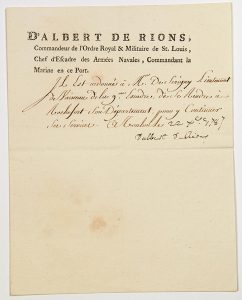 D'ALBERT DE RIONS,
Commandeur de l'Ordre Royal & Militaire de St. Louis,
Chef d'Escadre des Armées Navales, Commandant la
Marine en ce Port.
Il est ordonné à Mr. de Lieutenant
de Vaisseau de la 9me Escadre, de se Rendre à
Rochefort son Département, pour y Continuer
Ses Services. A le 22 1787
D'albert de Rions